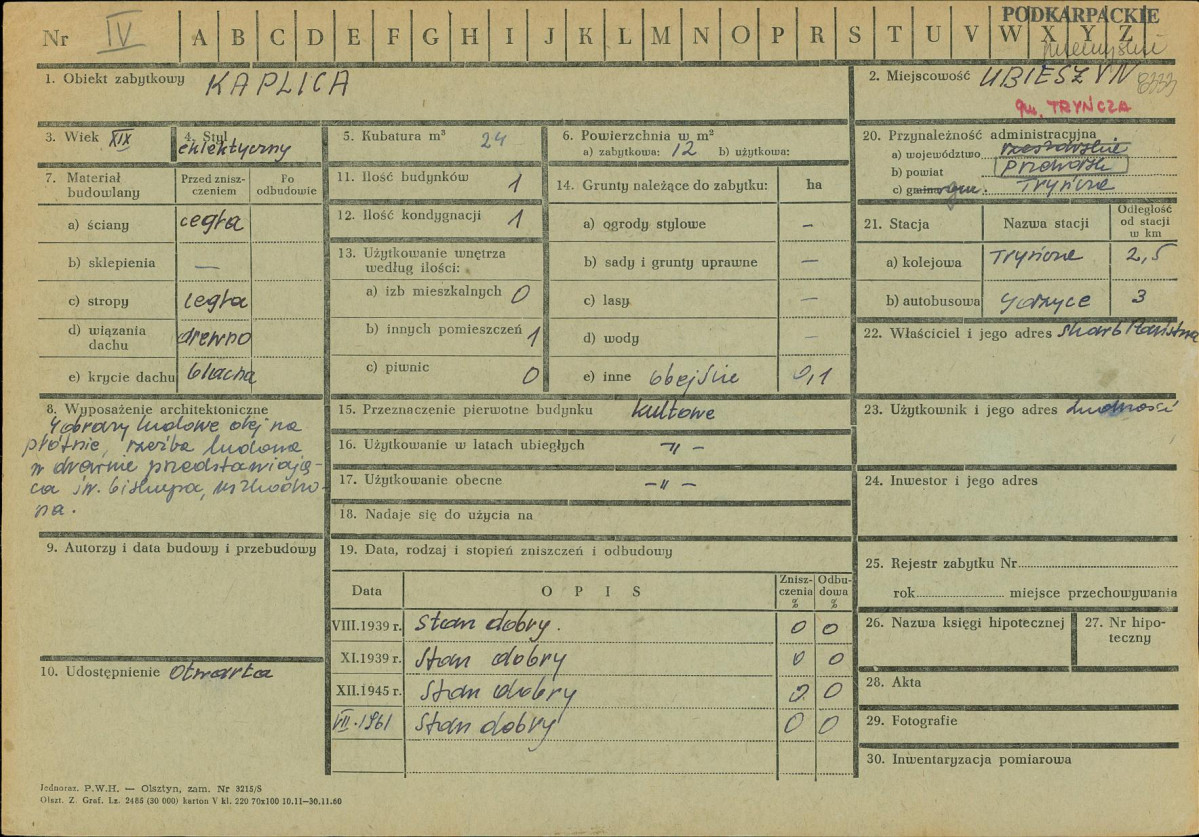 PODKARPACKIE
Nr IV A B C D E F G H I J K L M N O P R S T U V W X Y Z
1. Obiekt zabytkowy KAPLICA
2. Miejscowość UBIESZYN
gm. TRYŃCZA
3. Wiek XIX
4. Styl eklektyczny
5. Kubatura m³ 24
6. Powierzchnia w m²
a) zabytkowa: 12 b) użytkowa:
7. Materiał budowlany
Przed zniszczeniem
Po odbudowie
a) ściany cegła
b) sklepienia —
c) stropy cegła
d) wiązania dachu drewno
e) krycie dachu blacha
8. Wyposażenie architektoniczne
4 obrazy ludowe olej na
płótnie, rzeźba ludowa
w drewnie przedstawiają-
ca św. biskupa, uszkodzo-
na.
9. Autorzy i data budowy i przebudowy
10. Udostępnienie Otwarta
11. Ilość budynków 1
12. Ilość kondygnacji 1
13. Użytkowanie wnętrza
według ilości:
a) izb mieszkalnych 0
b) innych pomieszczeń 1
c) piwnic 0
14. Grunty należące do zabytku: ha
a) ogrody stylowe –
b) sady i grunty uprawne —
c) lasy —
d) wody –
e) inne obejście 0,1
15. Przeznaczenie pierwotne budynku kultowe
16. Użytkowanie w latach ubiegłych -"-
17. Użytkowanie obecne -"-
18. Nadaje się do użycia na
19. Data, rodzaj i stopień zniszczeń i odbudowy
Data OPIS Zniszczenia % Odbudowa %
VIII.1939 r. Stan dobry. 0 0
XI.1939 r. Stan dobry 0 0
XII.1945 r. Stan dobry 0 0
VII.1961 Stan dobry 0 0
20. Przynależność administracyjna
a) województwo rzeszowskie
b) powiat Przeworsk
c) gmina gm. Tryńcza
21. Stacja Nazwa stacji Odległość od stacji w km
a) kolejowa Tryńcza 2,5
b) autobusowa Gorzyce 3
22. Właściciel i jego adres Skarb Państwa
23. Użytkownik i jego adres ludność
24. Inwestor i jego adres
25. Rejestr zabytku Nr
rok miejsce przechowywania
26. Nazwa księgi hipotecznej
27. Nr hipoteczny
28. Akta
29. Fotografie
30. Inwentaryzacja pomiarowa
Jednoraz. P.W.H. — Olsztyn, zam. Nr 3215/S
Olszt. Z. Graf. Lz. 2485 (30 000) karton V kl. 220 70x100 10.11—30.11.60